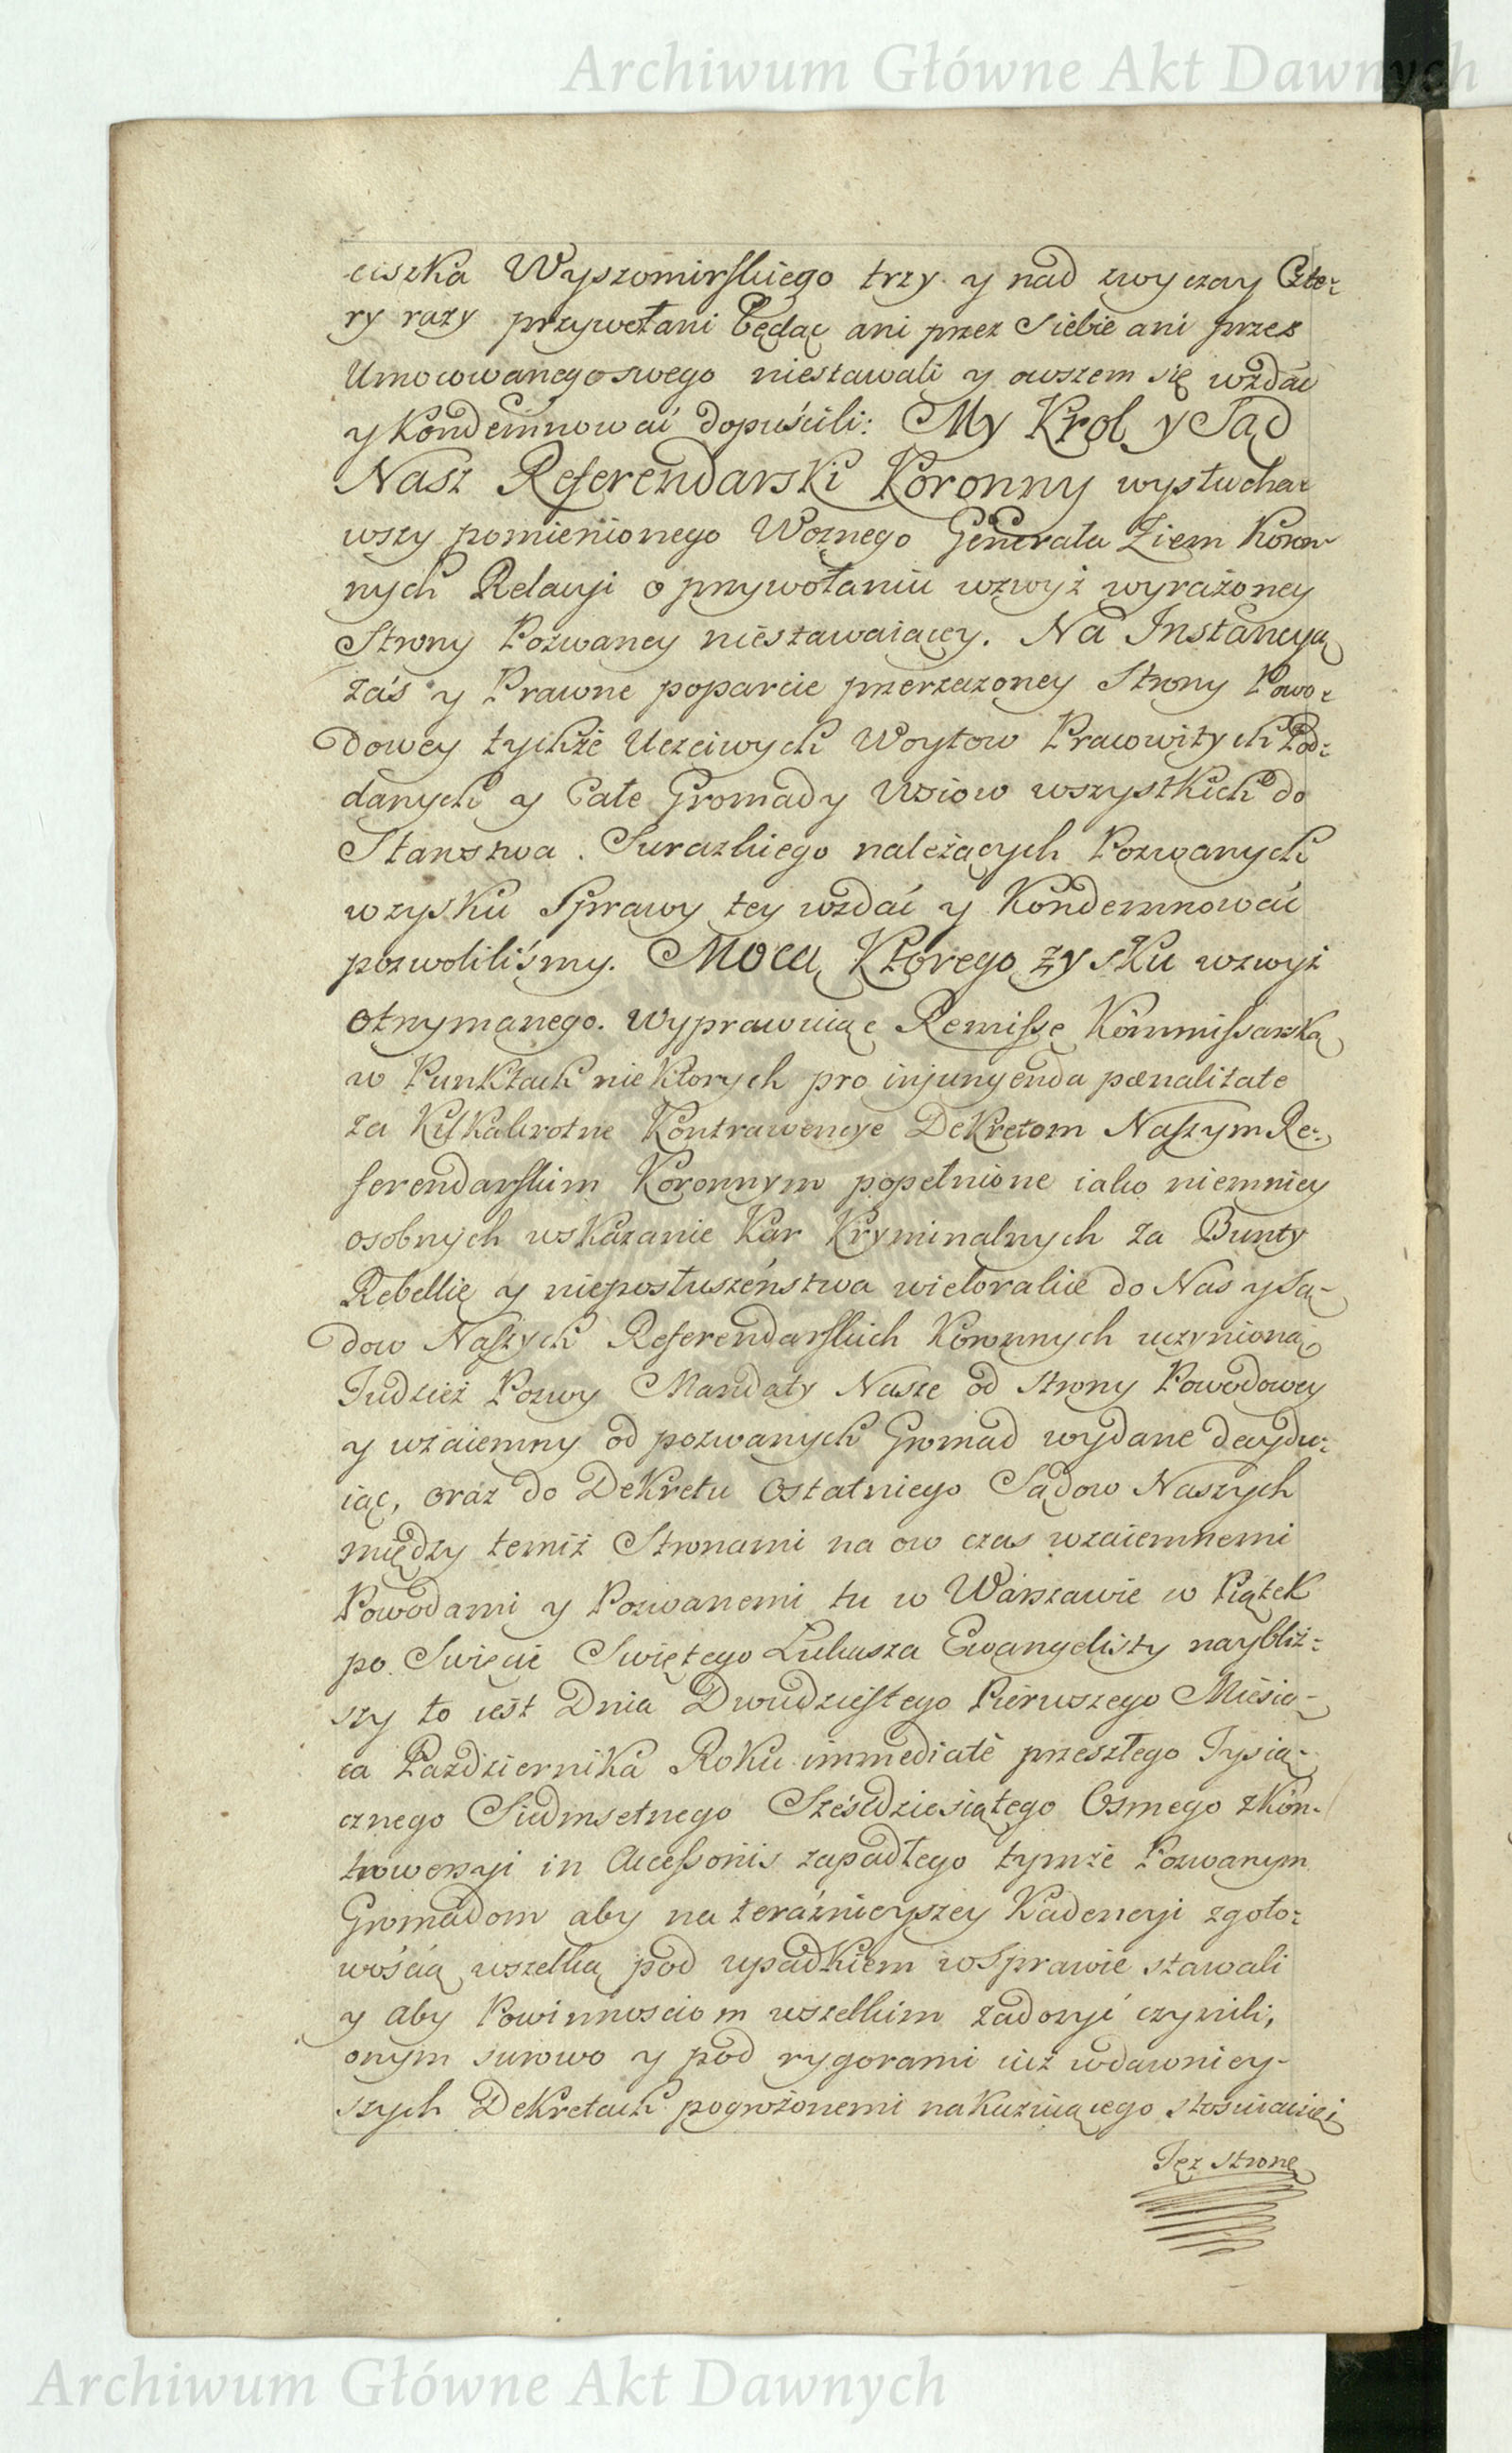 Archiwum Główne Akt Dawnych
ciszka Wyszomirskiego trzy y nad zwyczay Czte:
ry razy przywołani będąc ani przez Siebie ani przez
Umocowanego swego niestawali y owszem się wzdać
y Kondemnować dopuścili: My Krol y Sąd
Nasz Referendarski Koronny wysłucha:
wszy pomienionego Woznego Generała Ziem Koron-
nych Relacyi o przywołaniu wzwyż wyrażoney
Strony Pozwaney niestawaiącey. Na Instancyą
zaś y Prawne poparcie przerzeczoney Strony Powo:
dowey tychże Uczciwych Woytow Pracowitych Pod:
danych y Całe Gromady Wsiow wszystkich do
Starostwa Surazkiego należących Pozwanych
w zysku Sprawy tey wzdać y Kondemnować
pozwoliliśmy. Mocą Ktorego zysku wzwyż
otrzymanego. Wyprawuiąc Remissę Kommissarską
w Punktach niektorych pro injungenda pœnalitate
za Kilkakrotne Kontrawencye Dekretom Naszym Re:
ferendarskim Koronnym popełnione iako niemniey
osobnych wskazanie Kar Kryminalnych za Bunty
Rebellię y nieposłuszeństwa wielorakie do Nas y Są-
dow Naszych Referendarskich Koronnych uczynioną
Tudzież Pozwy Mandaty Nasze od Strony Powodowey
y wzaiemny od pozwanych Gromad wydane decydu:
iąc, oraz do Dekretu Ostatniego Sądow Naszych
między temiż Stronami na ow czas wzaiemnemi
Powodami y Pozwanemi tu w Warszawie w Piątek
po Swięcie Swiętego Łukasza Ewangelisty naybliż:
szy to iest Dnia Dwudziestego Pierwszego Miesią-
ca Pazdziernika Roku immediate przeszłego Tysią-
cznego Siedmsetnego Sześćdziesiątego Osmego z Kon-
trowersyi in Accessoriis zapadłego tymże Pozwanym
Gromadom aby na teraźnieyszey Kadencyi z goto:
wością wszelką pod upadkiem w Sprawie stawali
y aby Powinnosciom wszelkim zadosyć czynili,
onym surowo y pod rygorami iuż w dawniey-
szych Dekretach pogrożonemi nakazuiącego stosuiąc się
Tęż Stronę
Archiwum Główne Akt Dawnych